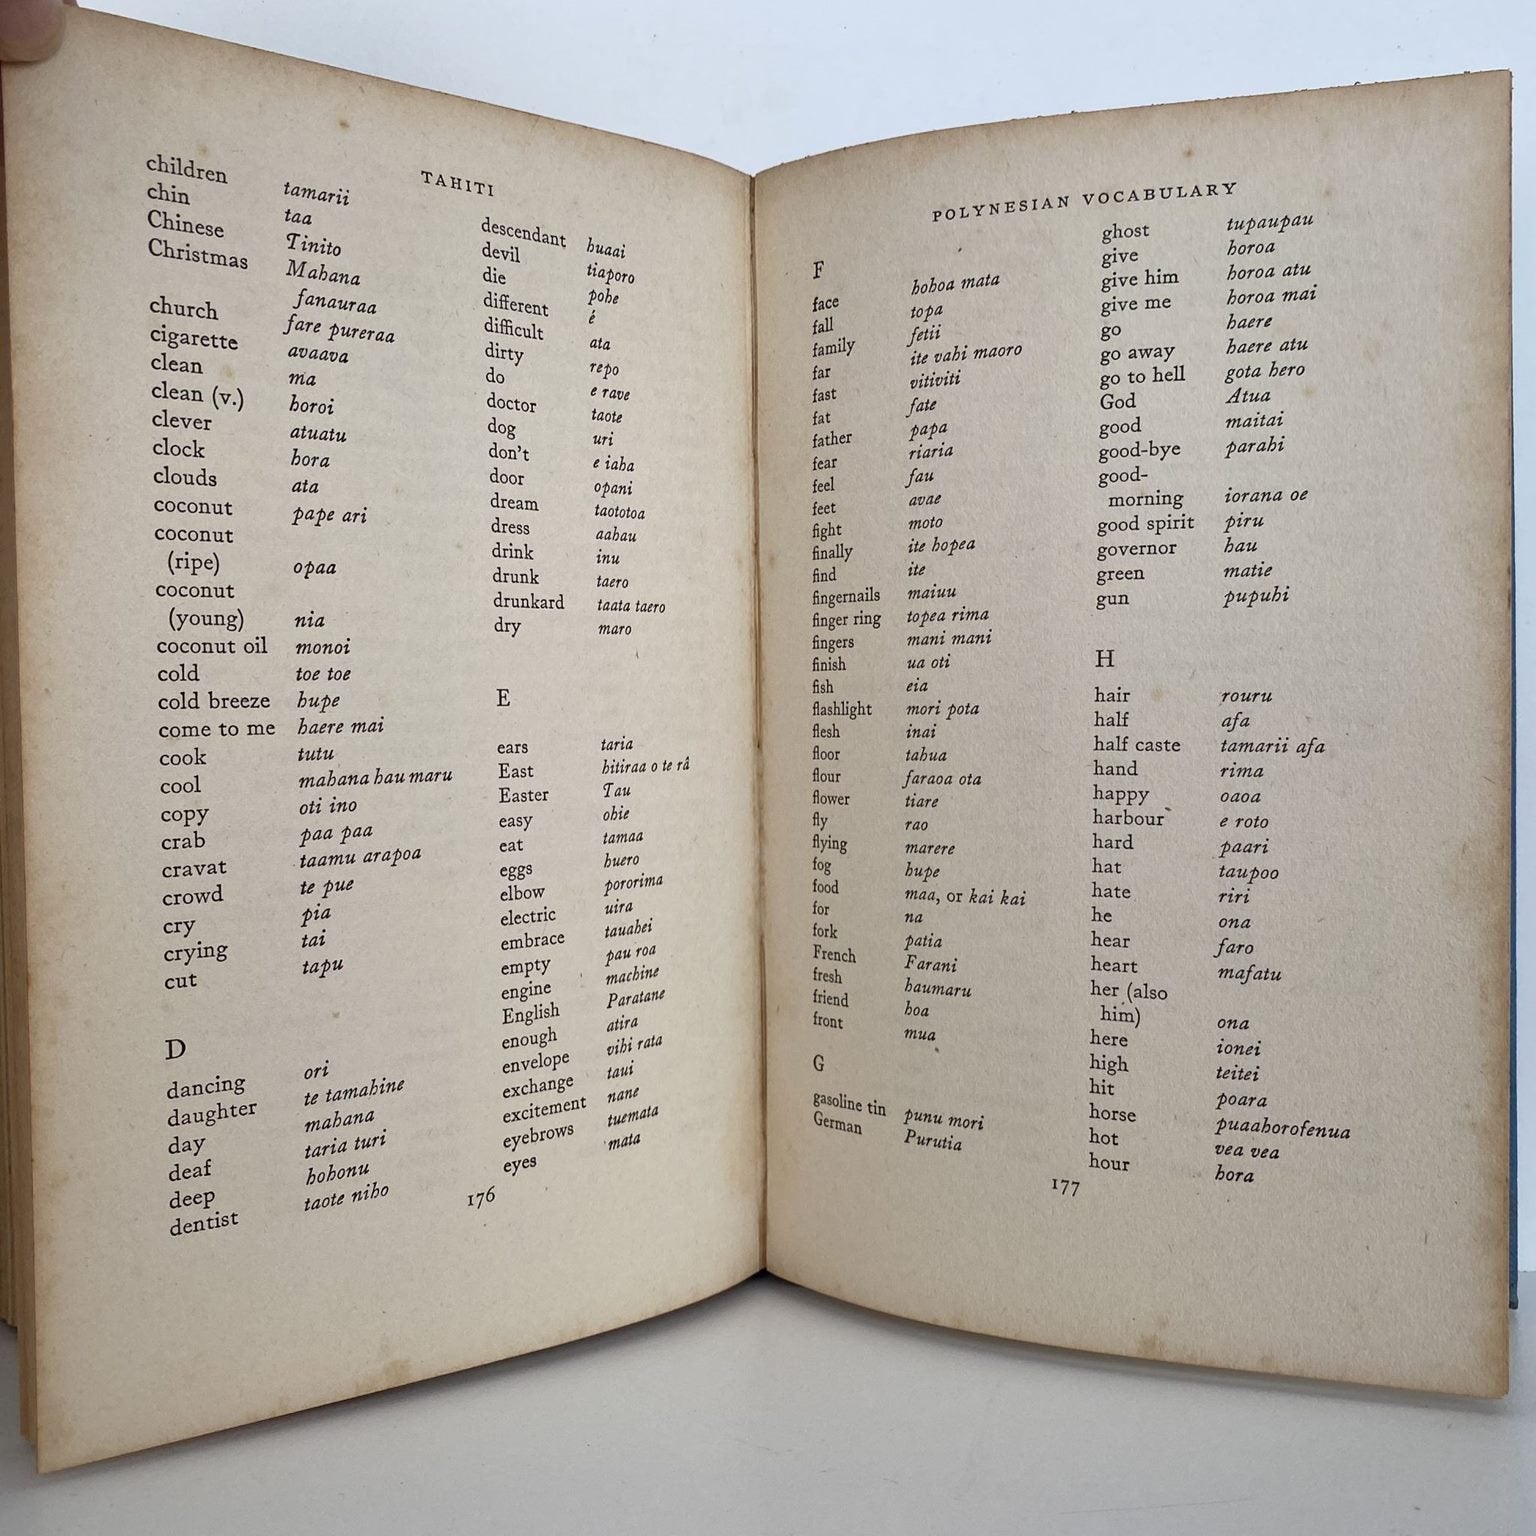 TAHITI
children tamarii
chin taa
Chinese Tinito
Christmas Mahana
fanauraa
church fare pureraa
cigarette avaava
clean ma
clean (v.) horoi
clever atuatu
clock hora
clouds ata
coconut pape ari
coconut
(ripe) opaa
coconut
(young) nia
coconut oil monoi
cold toe toe
cold breeze hupe
come to me haere mai
cook tutu
cool mahana hau maru
copy oti ino
crab paa paa
cravat taamu arapoa
crowd te pue
cry pia
crying tai
cut tapu
D
dancing ori
daughter te tamahine
day mahana
deaf taria turi
deep hohonu
dentist taote niho
descendant huaai
devil tiaporo
die pohe
different é
difficult ata
dirty repo
do e rave
doctor taote
dog uri
don't e iaha
door opani
dream taototoa
dress aahau
drink inu
drunk taero
drunkard taata taero
dry maro
E
ears taria
East hitiraa o te râ
Easter Tau
easy ohie
eat tamaa
eggs huero
elbow pororima
electric uira
embrace tauahei
empty pau roa
engine machine
English Paratane
enough atira
envelope vihi rata
exchange taui
excitement nane
eyebrows tuemata
eyes mata
176
POLYNESIAN VOCABULARY
F
face hohoa mata
fall topa
family fetii
far ite vahi maoro
fast vitiviti
fat fate
father papa
fear riaria
feel fau
feet avae
fight moto
finally ite hopea
find ite
fingernails maiuu
finger ring topea rima
fingers mani mani
finish ua oti
fish eia
flashlight mori pota
flesh inai
floor tahua
flour faraoa ota
flower tiare
fly rao
flying marere
fog hupe
food maa, or kai kai
for na
fork patia
French Farani
fresh haumaru
friend hoa
front mua
G
gasoline tin punu mori
German Purutia
ghost tupaupau
give horoa
give him horoa atu
give me horoa mai
go haere
go away haere atu
go to hell gota hero
God Atua
good maitai
good-bye parahi
good-
morning iorana oe
good spirit piru
governor hau
green matie
gun pupuhi
H
hair rouru
half afa
half caste tamarii afa
hand rima
happy oaoa
harbour e roto
hard paari
hat taupoo
hate riri
he ona
hear faro
heart mafatu
her (also
him) ona
here ionei
high teitei
hit poara
horse puaahorofenua
hot vea vea
hour hora
177